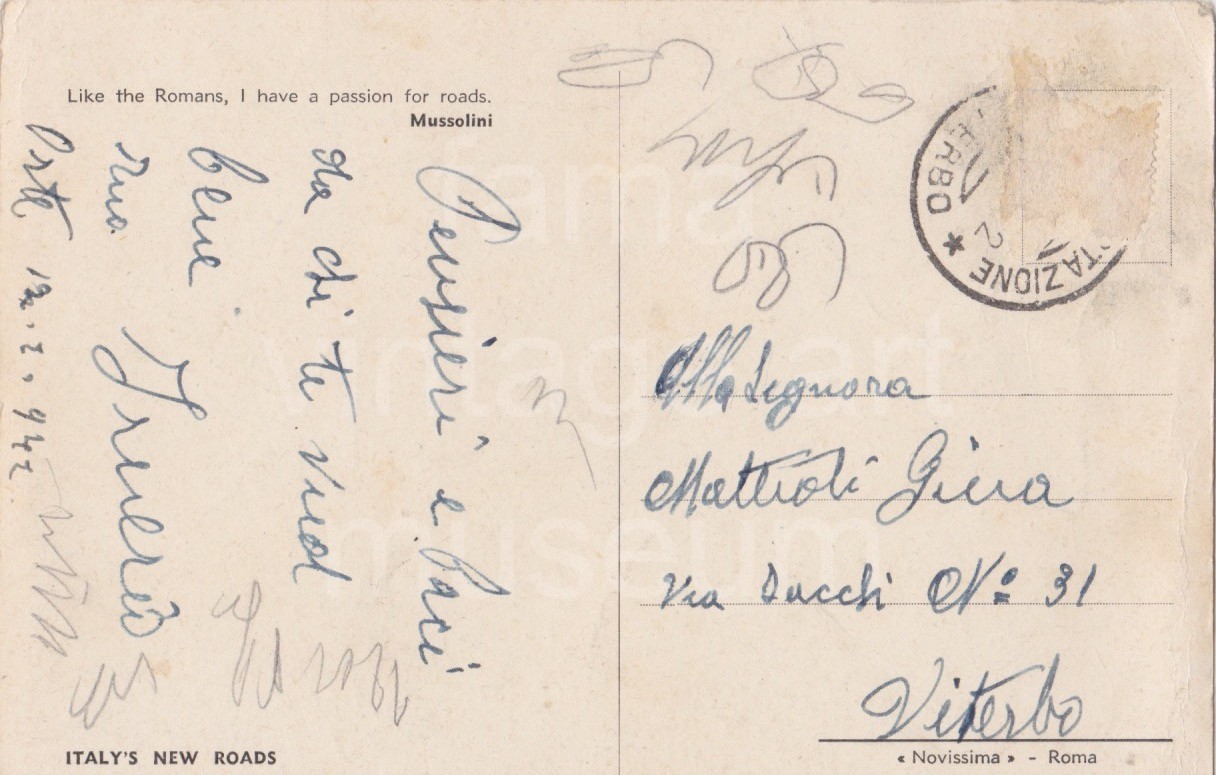 Like the Romans, I have a passion for roads.
Mussolini
Pensieri e Baci
da chi ti vuol
bene
tuo Irnerio
Orte 12.2.942
ITALY'S NEW ROADS
ERBO ★ STAZIONE
2
Alla Signora
Mattioli Gina
Via Sacchi Nº 31
Viterbo
« Novissima » - Roma
fama
vintage art
museum